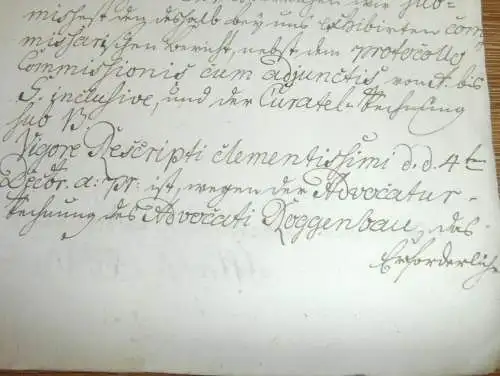 wir sub-
missest den deshalb bey uns exhibirten Com-
missarischen Bericht, nebst dem Protocollo
Commissionis cum adjunctis von A. bis
G. inclusive, und der Curatel-Rechnung
sub B
Vigore Rescripti clementissimi d. d. 4ten
Decbr. a: pr: ist, wegen der Advocatur-
Rechnung des Advocati Roggenbau, das
Erforderliche